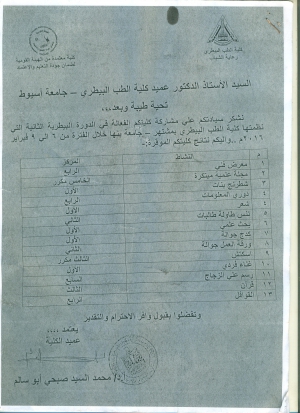 كلية الطب البيطري
رعاية الشباب
كلية معتمدة من الهيئة القومية
لضمان جودة التعليم والاعتماد
السيد الأستاذ الدكتور عميد كلية الطب البيطري – جامعة أسيوط
تحية طيبة وبعد،،،
نشكر سيادتكم علي مشاركة كليتكم الفعالة في الدورة البيطرية الثانية التي
نظمتها كلية الطب البيطري بمشتهر – جامعة بنها خلال الفترة من ٦ الي ٩ فبراير
٢٠١٦م ,, واليكم نتائج كليتكم الموقرة:-
م النشاط المركز
١ معرض فني الرابع
٢ مجلة علمية مبتكرة الخامس مكرر
٣ شطرنج بنات الأول
٤ دوري المعلومات الأول
٥ شعر الرابع
٦ تنس طاولة طالبات الأول
٧ بحث علمي الثاني
٨ كدج جوالة الأول
٩ ورقة العمل جوالة الأول
١٠ اسكتش الثاني
١١ غناء فردي الثالث مكرر
١٢ رسم علي الزجاج الأول
قرآن السابع
١٣ الثالث
الرابع
وتفضلوا بقبول وافر الاحترام والتقدير
يعتمد ،،،،
عميد الكلية
أ.د/ محمد السيد صبحي أبو سالم